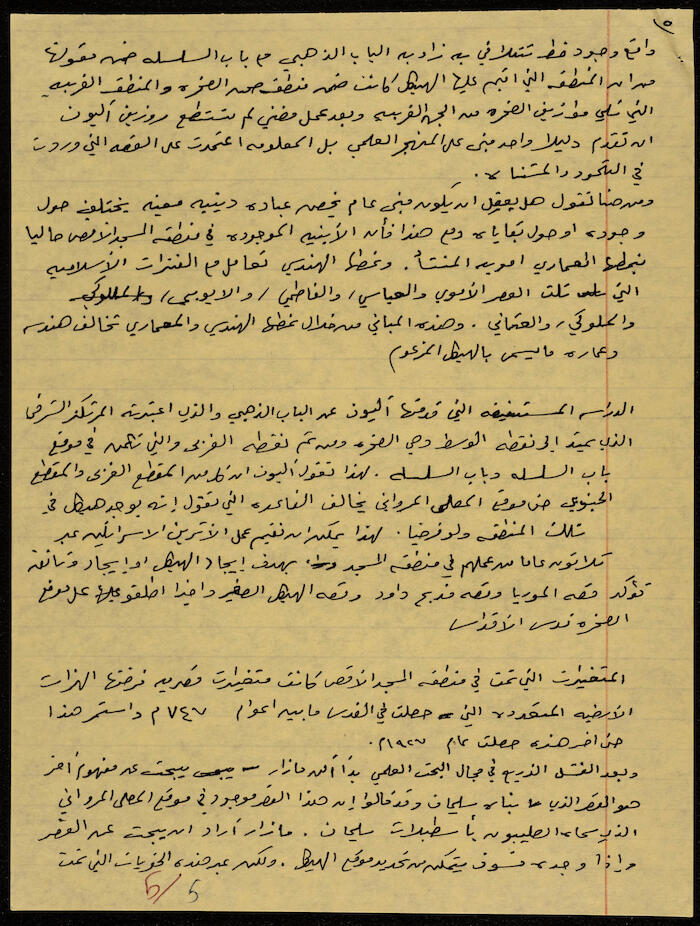 ٥
واقع وجود خط تتلاقى به زاويه الباب الذهبي مع باب السلسله ضمن مقولتها
من ان المنطقه التي اقيم عليها الهيكل كانت ضمن منطقه صحن الصخره والمنطقه الغربيه
التي تلي موازين الصخره من الجهه الغربيه وبعد عمل مضني لم تستطع روزين آليون
ان تقدم دليلا واحد مبني على المنهج العلمي بل المعلومه اعتمدت على القصه التي وردت
في التلمود والمشناه.
ومن هنا نقول هل يعقل ان يكون مبنى عام يخص عباده دينيه معينه يختلف حول
وجوده او حول بقاياه ومع هذا فأن الأبنيه الموجوده في منطقه المسجد الاقصى حاليا
بنمطها المعماري امويه المنشأ. ونمطها الهندسي تعامل مع الفترات الأسلاميه
التي تلت العصر الأموي والعباسي/ والفاطمي/ والايوبي/
والمملوكي/ والعثماني. وهذه المباني من خلال نمطها الهندسي والمعماري تخالف هندسه
وعماره ما يسمى بالهيكل المزعوم
الدراسه المستفيضه التي قدمتها آليون عن الباب الذهبي والذي اعتبرته المرتكز الشرقي
الذي يمتد الى نقطه الوسط وهي الصخره ومن ثم نقطه الغربي والتي تكمن في موقع
باب السلسله وباب السلسله. لهذا تقول آليون ان كلا من المقطع الغربي والمقطع
الجنوبي حتى موقع المصلى المرواني يخالف القاعده التي تقول إنه يوجد هيكل في
تلك المنطقه ولو فرضيا. لهذا يمكن ان نقيم عمل الأثريين الاسرائيلين عبر
ثلاثون عاما من عملهم في منطقه المسجد بهدف إيجاد الهيكل او إيجاد وثائق
تؤكد قصه الموريا وقصه مذبح داود وقصه الهيكل الصغير واخيرا اطلقو على موقع
الصخره قدس الأقداس
المتغيرات التي تمت في منطقه المسجد الاقصى كانت متغيرات قصريه فرضتها الهزات
الأرضيه المتعدده التي حصلت في القدس ما بين اعوام ٧٤٧م واستمر هذا
حتى اخر هذه حصلت عام ١٩٢٧م.
وبعد الفشل الذريع في مجال البحث العلمي بدأ آلن مازار يبحث عن مفهوم أخر
هو القصر الذي بناه سليمان وقد قالوا إن هذا القصر موجود في موقع المصلى المرواني
الذي سماه الصليبيون بأسطبلات سليمان. مازار أراد ان يبحث عن القصر
وإذا وجده فسوف يتمكن من تحديد موقع الهيكل. ولكن عبر هذه الحفريات التي تمت
5/5